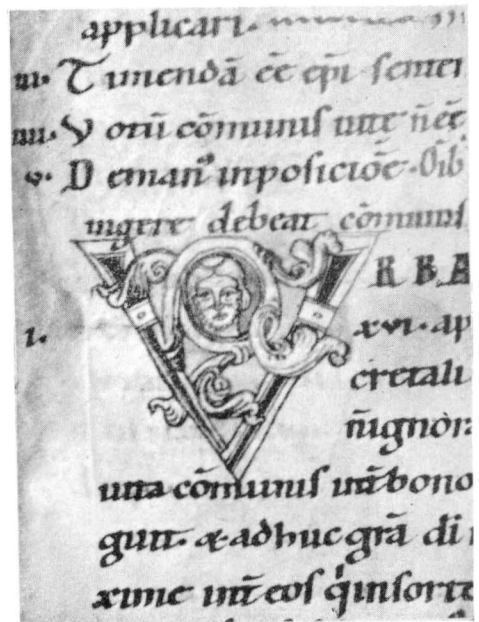 applicari.
iii. Timendā eē epī senten
iiii. Votū cōmunis uite n̄ eē
v. De man᾿ inposiciōe. Oīb
ingere debeat cōmunis
V RBA
i. xvi. ap
cretali
n̄ ignor
uita cōmunis int̄ bono
guit. & adhuc grā di
xime int̄ eos qͥ insorte